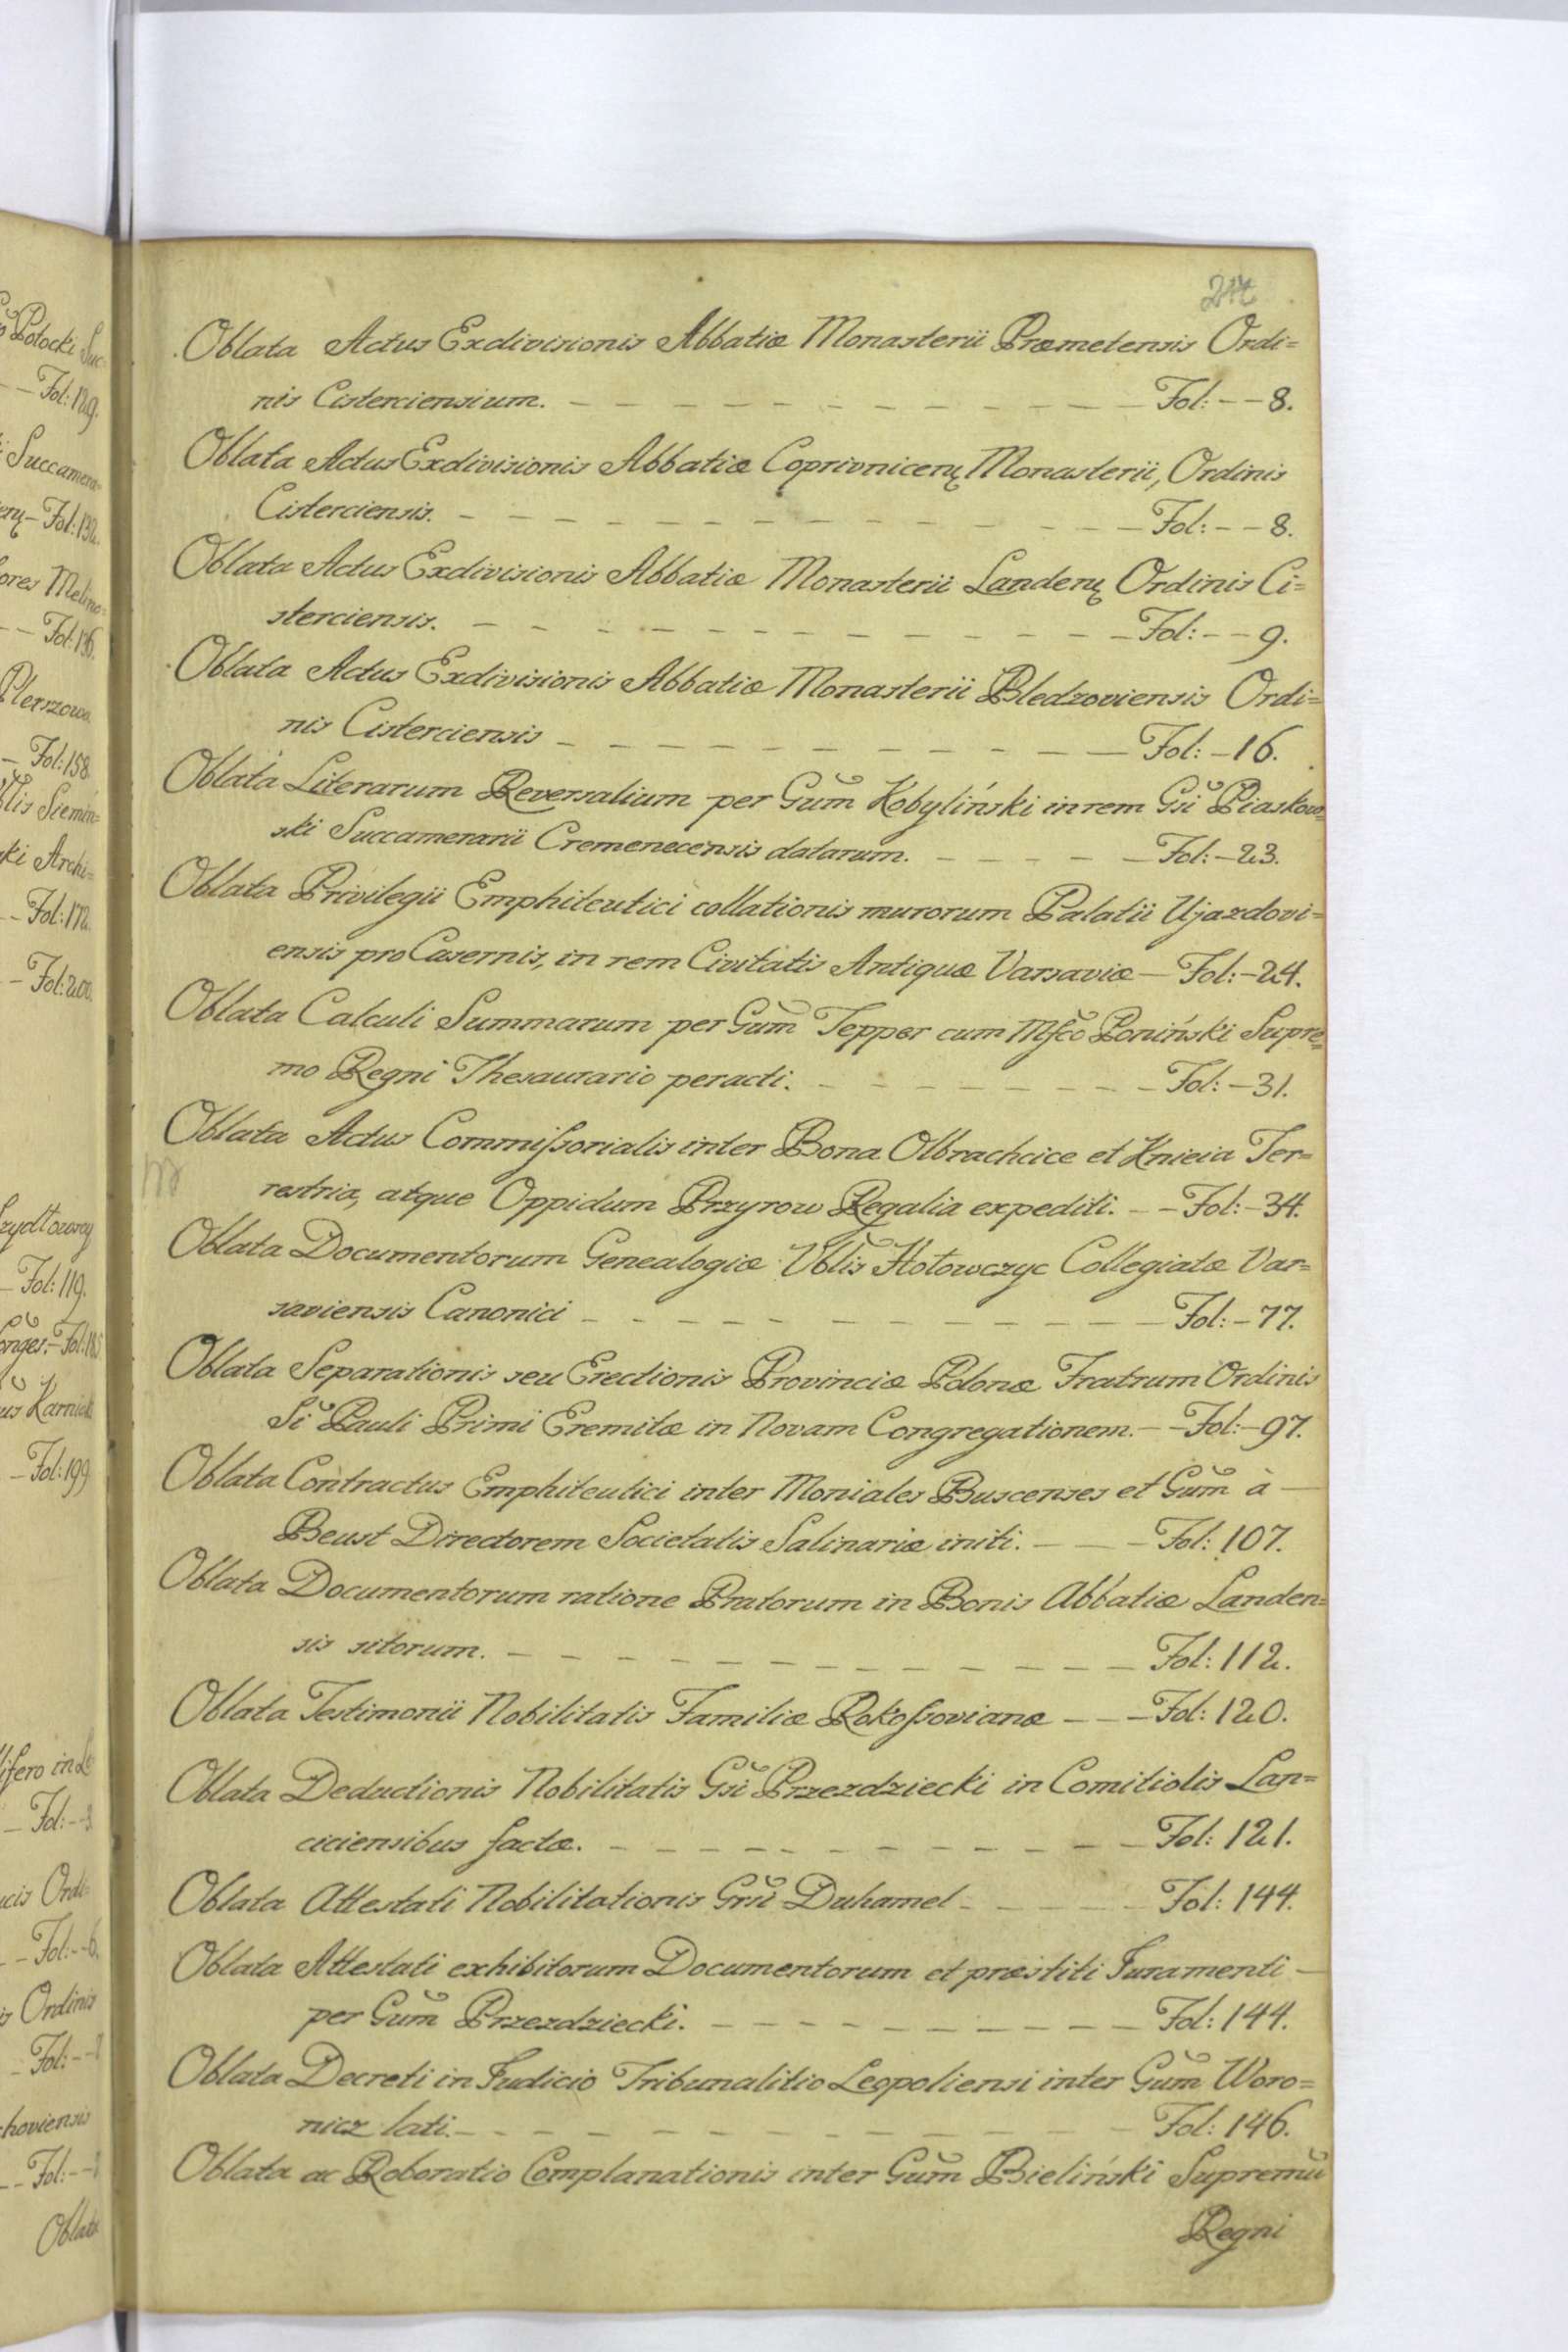 Oblata Actus Exdivisionis Abbatiæ Monasterii Præmetensis Ordi=
nis Cisterciensium. – – – Fol: – – 8.
Oblata Actus Exdivisionis Abbatiæ Coprivnicenꝭ Monasterii, Ordinis
Cisterciensis. – – – Fol: – – 8.
Oblata Actus Exdivisionis Abbatiæ Monasterii Landenꝭ Ordinis Ci=
sterciensis. – – – Fol: – – 9.
Oblata Actus Exdivisionis Abbatiæ Monasterii Bledzoviensis Ordi=
nis Cisterciensis – – – Fol: – 16.
Oblata Literarum Reversalium per Gũm Kobyliński in rem Gsĩ Piaskow=
ski Succamerarii Cremenecensis datarum. – – – Fol: – 23.
Oblata Privilegii Emphiteutici collationis murorum Palatii Ujazdovi=
ensis pro Casernis, in rem Civitatis Antiquæ Varsaviæ – Fol: – 24.
Oblata Calculi Summarum per Gũm Tepper cum Mfcõ Poniński Supre=
mo Regni Thesaurario peracti. – – – Fol: – 31.
Oblata Actus Commiſsorialis inter Bona Olbrachcice et Knieia Ter=
restria, atque Oppidum Przyrow Regalia expediti. – – Fol: – 34.
Oblata Documentorum Genealogiæ Vblĩs Hołowczyc Collegiatæ Var=
saviensis Canonici – – – Fol: – 77.
Oblata Separationis seu Erectionis Provinciæ Polonæ Fratrum Ordinis
Sĩ Pauli Primi Eremitæ in Novam Congregationem. – – Fol: – 97.
Oblata Contractus Emphiteutici inter Moniales Buscenses et Gũm à –
Beust Directorem Societatis Salinariæ initi. – – – Fol: 107.
Oblata Documentorum ratione Pratorum in Bonis Abbatiæ Landen=
sis sitorum. – – – Fol: 112.
Oblata Testimonii Nobilitatis Familiæ Rokoſsovianæ – – – Fol: 120.
Oblata Deductionis Nobilitatis Gsĩ Przezdziecki in Comitiolis Lan=
ciciensibus factæ. – – – Fol: 121.
Oblata Attestati Nobilitationis Grsĩ Duhamel – – – Fol: 144.
Oblata Attestati exhibitorum Documentorum et præstiti Juramenti –
per Gũm Przezdziecki. – – – Fol: 144.
Oblata Decreti in Judicio Tribunalitio Leopoliensi inter Gũm Woro=
nicz lati. – – – Fol: 146.
Oblata ac Roboratio Complanationis inter Gũm Bieliński Supremũ
Regni